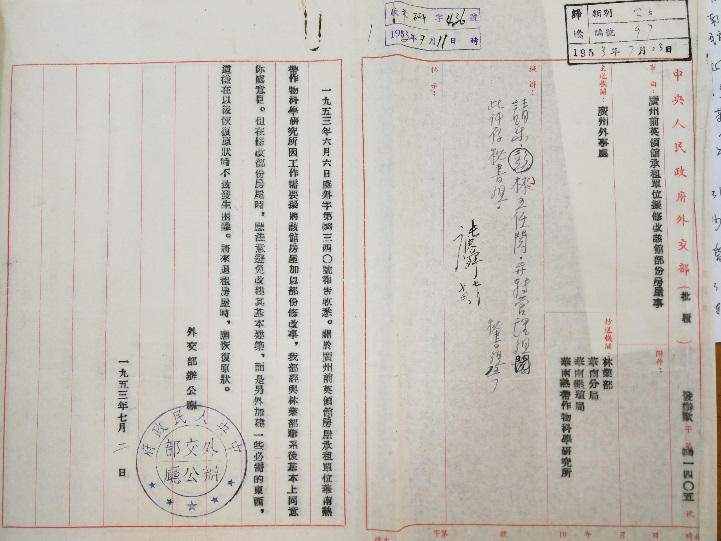 收文 字436號
1953年7月11日 時
歸檔 類別
編號 97
1953年7月13日
中央人民政府外交部（批覆）
發辦歐 字第 1405 號
事由：廣州前英領館承租單位擬修改該館部份房屋事
附件：
主送機關：廣州外事處
抄送機關：林業部
華南分局
華南墾殖局
華南熱帶作物科學研究所
擬辦：
請 林主任閱，並轉管理組閱
此件存秘書組。
秘書組
批示：
一九五三年六月六日 外字第 三四〇號報告收悉。關於廣州前英領館房屋承租單位華南熱
帶作物科學研究所因工作需要擬將該館房屋加以部份修改事，我部經與林業部聯系後基本上同意
你處意見。但在修改部份房屋時，應注意避免改建其基本建築，而是另外加建一些必需的東西，
這樣在以後恢復原狀時不致發生困難。將來退租房屋時，應恢復原狀。
外交部辦公廳
一九五三年七月二日
中央人民政府
外交部
辦公廳